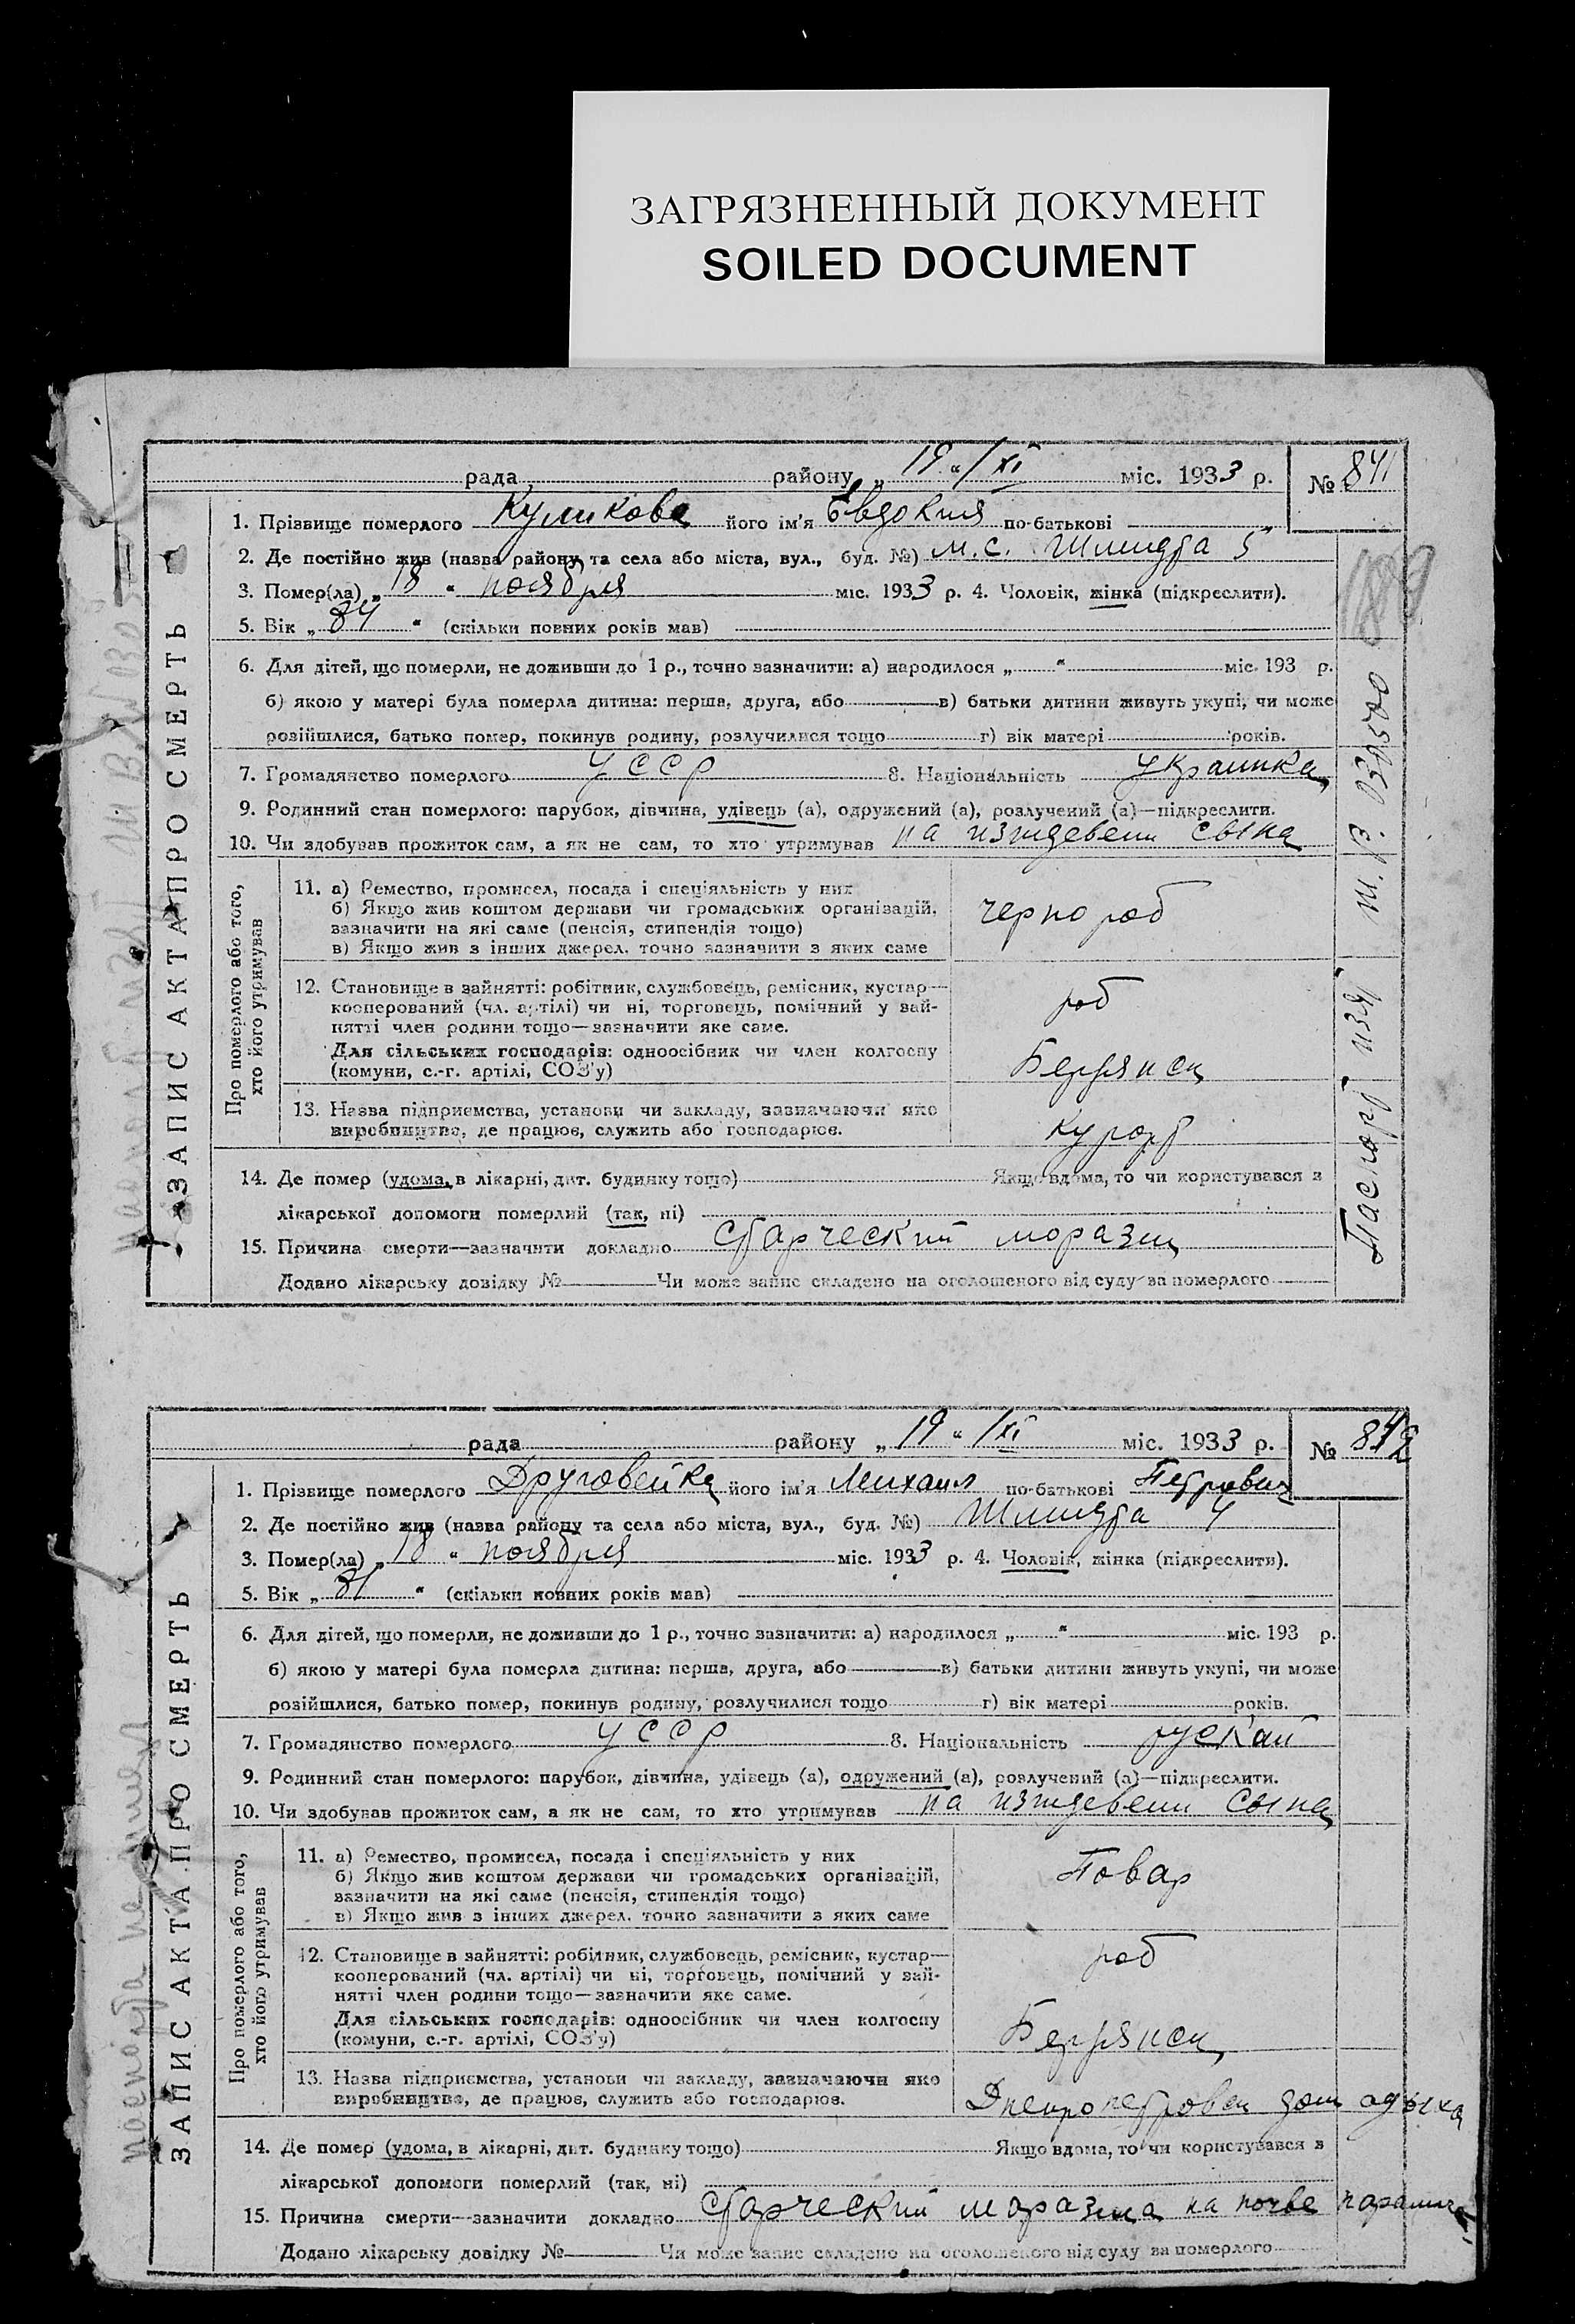 ЗАГРЯЗНЕННЫЙ ДОКУМЕНТ
SOILED DOCUMENT
рада району „ 19 “ /XI міс. 1933 р. № 841
1. Прізвище померлого Куликова його ім'я Евдокия по-батькові
2. Де постійно жив (назва району та села або міста, вул., буд. №) м.с. Шмидта 5
3. Помер(ла) „ 18 “ ноября міс. 1933 р. 4. Чоловік, жінка (підкреслити).
5. Вік „ 84 “ (скільки повних років мав)
6. Для дітей, що померли, не доживши до 1 р., точно зазначити: а) народилося „ “ міс. 193 р.
б) якою у матері була померла дитина: перша, друга, або в) батьки дитини живуть укупі, чи може
розійшлися, батько помер, покинув родину, розлучилися тощо г) вік матері років.
7. Громадянство померлого УССР 8. Національність украинка
9. Родинний стан померлого: парубок, дівчина, удівець (а), одружений (а), розлучений (а)—підкреслити.
10. Чи здобував прожиток сам, а як не сам, то хто утримував на иждевени сына
Про померлого або того,
хто його утримував
11. а) Ремество, промисел, посада і спеціяльність у них
б) Якщо жив коштом держави чи громадських організацій,
зазначити на які саме (пенсія, стипендія тощо)
в) Якщо жив з інших джерел, точно зазначити з яких саме
чернораб
12. Становище в зайнятті: робітник, службовець, ремісник, кустар—
кооперований (чл. артілі) чи ні, торговець, помічний у зай-
нятті член родини тощо—зазначити яке саме.
Для сільських господарів: одноосібник чи член колгоспу
(комуни, с.-г. артілі, СОЗ'у)
раб
13. Назва підприємства, установи чи закладу, зазначаючи яке
виробництво, де працює, служить або господарює.
Бердянск
курорт
14. Де помер (удома, в лікарні, дит. будинку тощо) Якщо вдома, то чи користувався з
лікарської допомоги померлий (так, ні)
15. Причина смерти—зазначити докладно старческий моразм
Додано лікарську довідку № Чи може запис складено на оголошеного від суду за померлого
ЗАПИС АКТА ПРО СМЕРТЬ
рада району „ 19 “ /XI міс. 1933 р. № 842
1. Прізвище померлого Друговейка його ім'я Михаил по-батькові Петрович
2. Де постійно жив (назва району та села або міста, вул., буд. №) Шмидта 4
3. Помер(ла) „ 18 “ ноября міс. 1933 р. 4. Чоловік, жінка (підкреслити).
5. Вік „ 81 “ (скільки повних років мав)
6. Для дітей, що померли, не доживши до 1 р., точно зазначити: а) народилося „ “ міс. 193 р.
б) якою у матері була померла дитина: перша, друга, або в) батьки дитини живуть укупі, чи може
розійшлися, батько помер, покинув родину, розлучилися тощо г) вік матері років.
7. Громадянство померлого УССР 8. Національність руский
9. Родинний стан померлого: парубок, дівчина, удівець (а), одружений (а), розлучений (а)—підкреслити.
10. Чи здобував прожиток сам, а як не сам, то хто утримував на иждевени сына
Про померлого або того,
хто його утримував
11. а) Ремество, промисел, посада і спеціяльність у них
б) Якщо жив коштом держави чи громадських організацій,
зазначити на які саме (пенсія, стипендія тощо)
в) Якщо жив з інших джерел, точно зазначити з яких саме
Повар
12. Становище в зайнятті: робітник, службовець, ремісник, кустар—
кооперований (чл. артілі) чи ні, торговець, помічний у зай-
нятті член родини тощо—зазначити яке саме.
Для сільських господарів: одноосібник чи член колгоспу
(комуни, с.-г. артілі, СОЗ'у)
раб
13. Назва підприємства, установи чи закладу, зазначаючи яке
виробництво, де працює, служить або господарює.
Бердянск
Днепропетровск дом одыха
14. Де помер (удома, в лікарні, дит. будинку тощо) Якщо вдома, то чи користувався з
лікарської допомоги померлий (так, ні)
15. Причина смерти—зазначити докладно старческий моразма на почве паралича
Додано лікарську довідку № Чи може запис складено на оголошеного від суду за померлого
ЗАПИС АКТА ПРО СМЕРТЬ